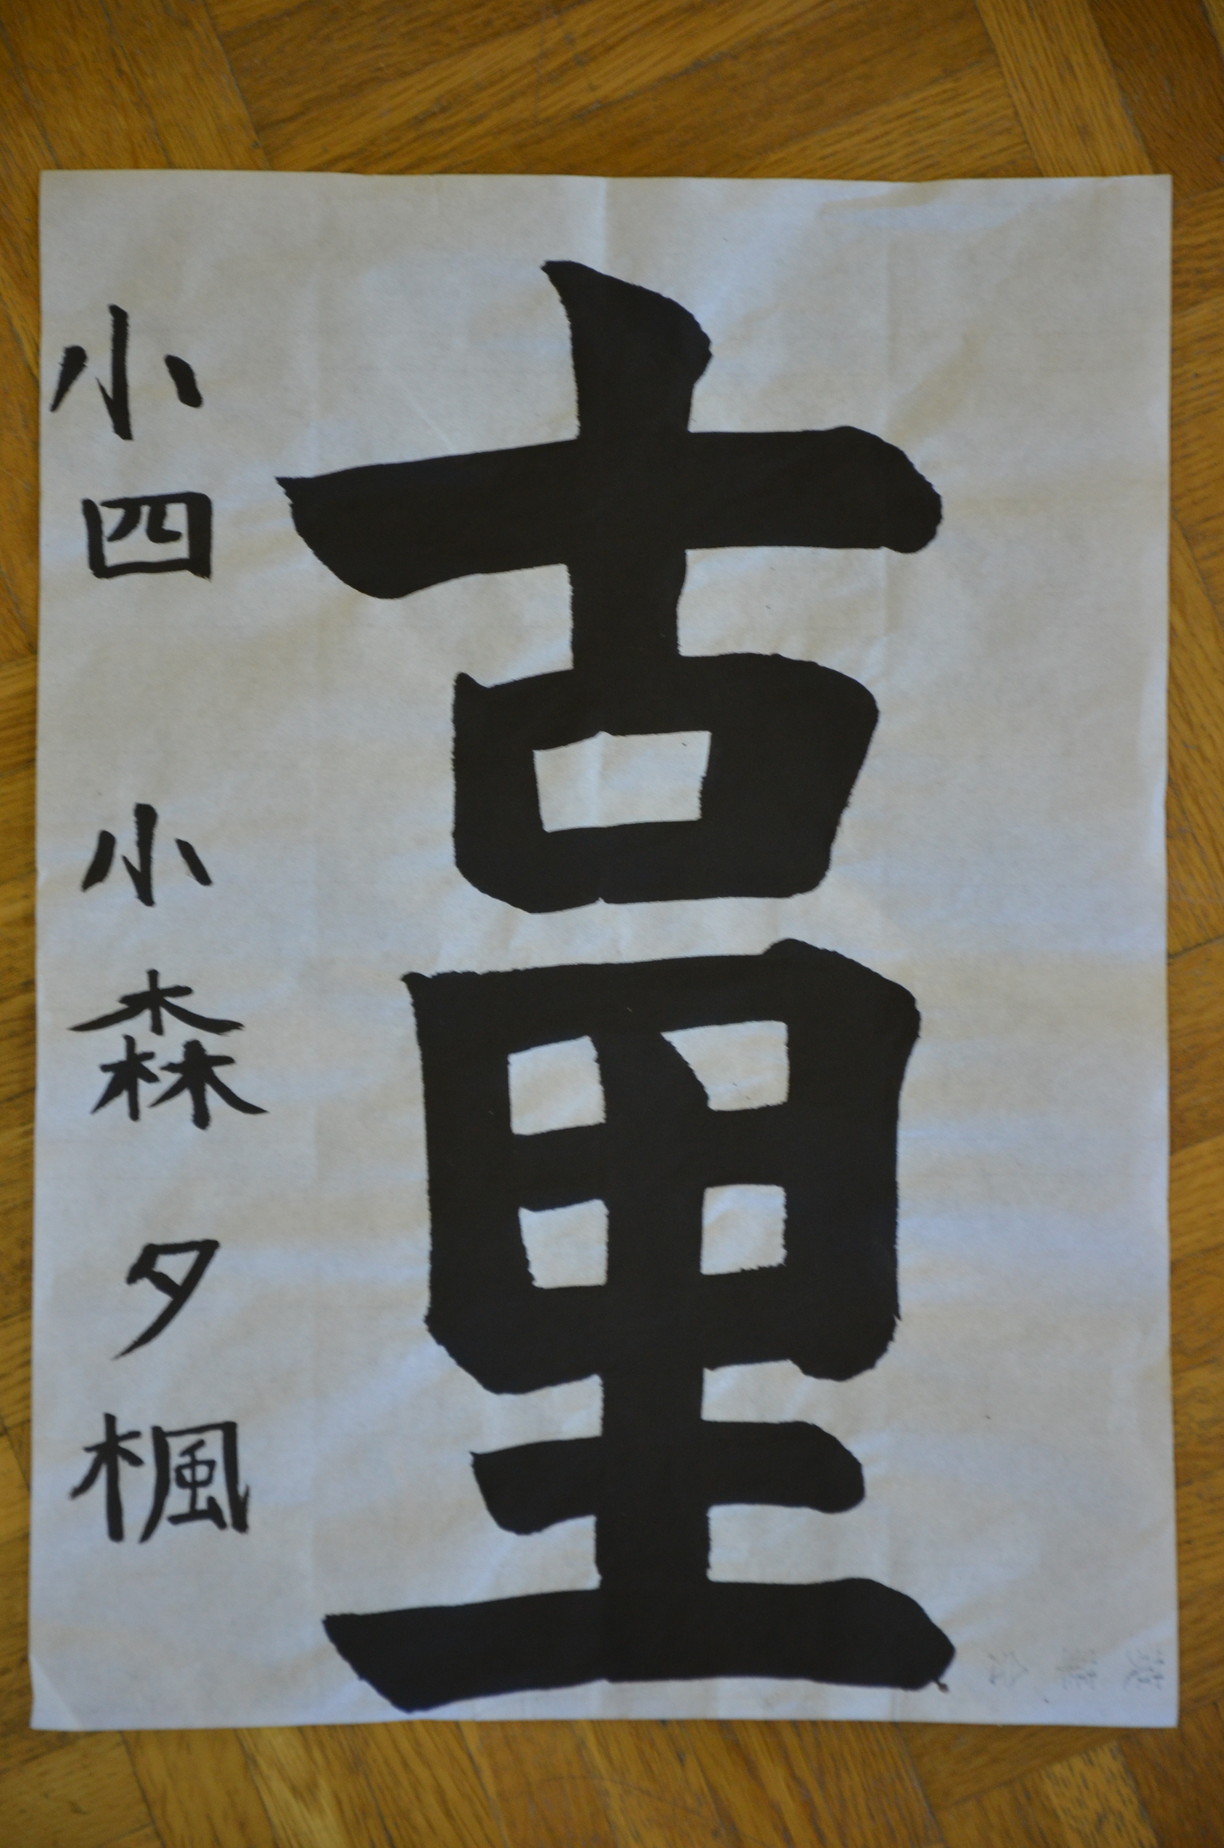 古里
小四 小森夕楓